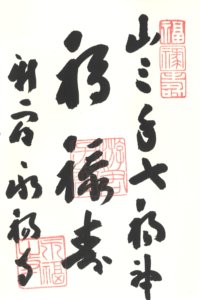 福祿壽
山之手七福神
福禄寿
新宿永福寺